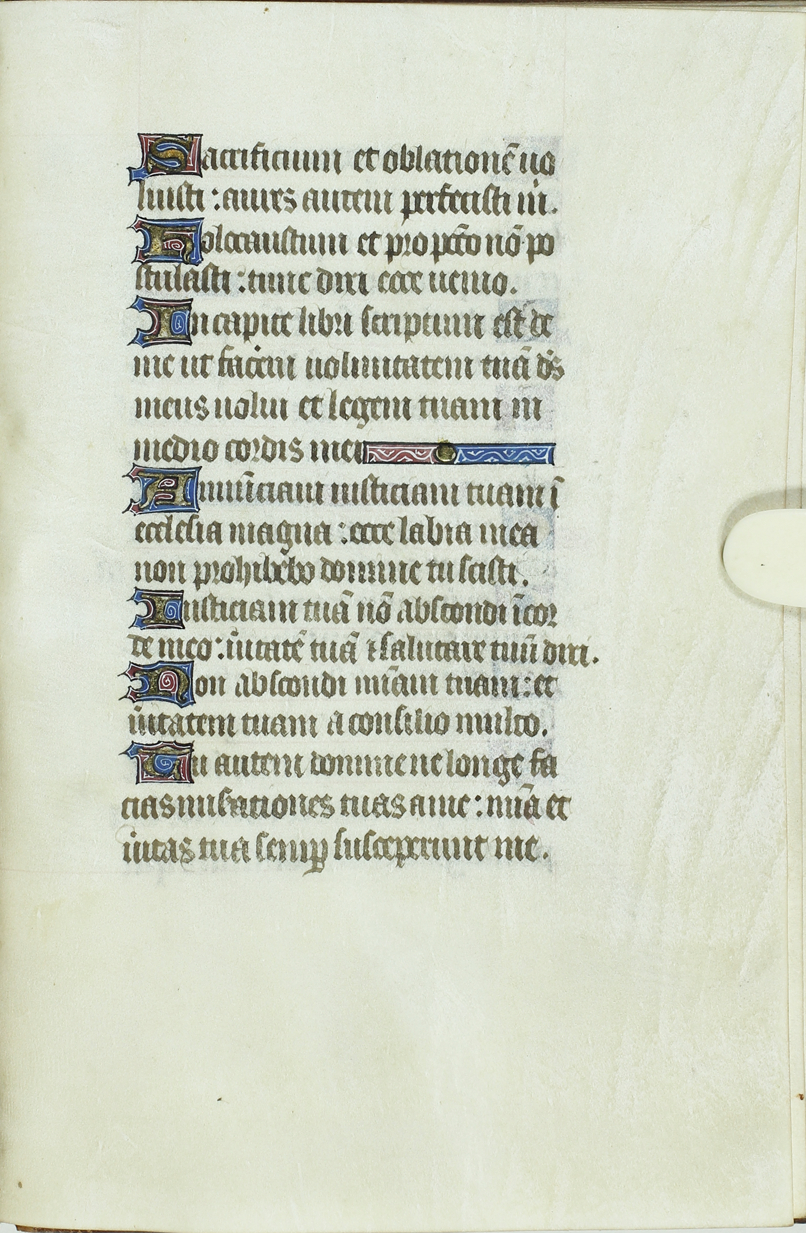 Sacrificium et oblationē no
luisti : aures autem perfecisti m̍.
Holocaustum et pro pccō nō po
stulasti : tunc dixi ecce uenio.
In capite libri scriptum est de
me ut facerem uoluntatem tuā ds̄
meus uolui et legem tuam in
medio cordis mei
Annūciaui iusticiam tuam ī
ecclesia magna : ecce labia mea
non prohibebo domine tu scisti.
Iusticiam tuā nō abscondi ī cor
de meo : ūitatē tuā ⁊ salutare tuū dixi.
Non abscondi mīam tuam : et
ūitatem tuam a consilio multo.
Tu autem domine ne longe fa
cias miserationes tuas a me : mīa et
ūitas tua semꝑ susceperunt me.